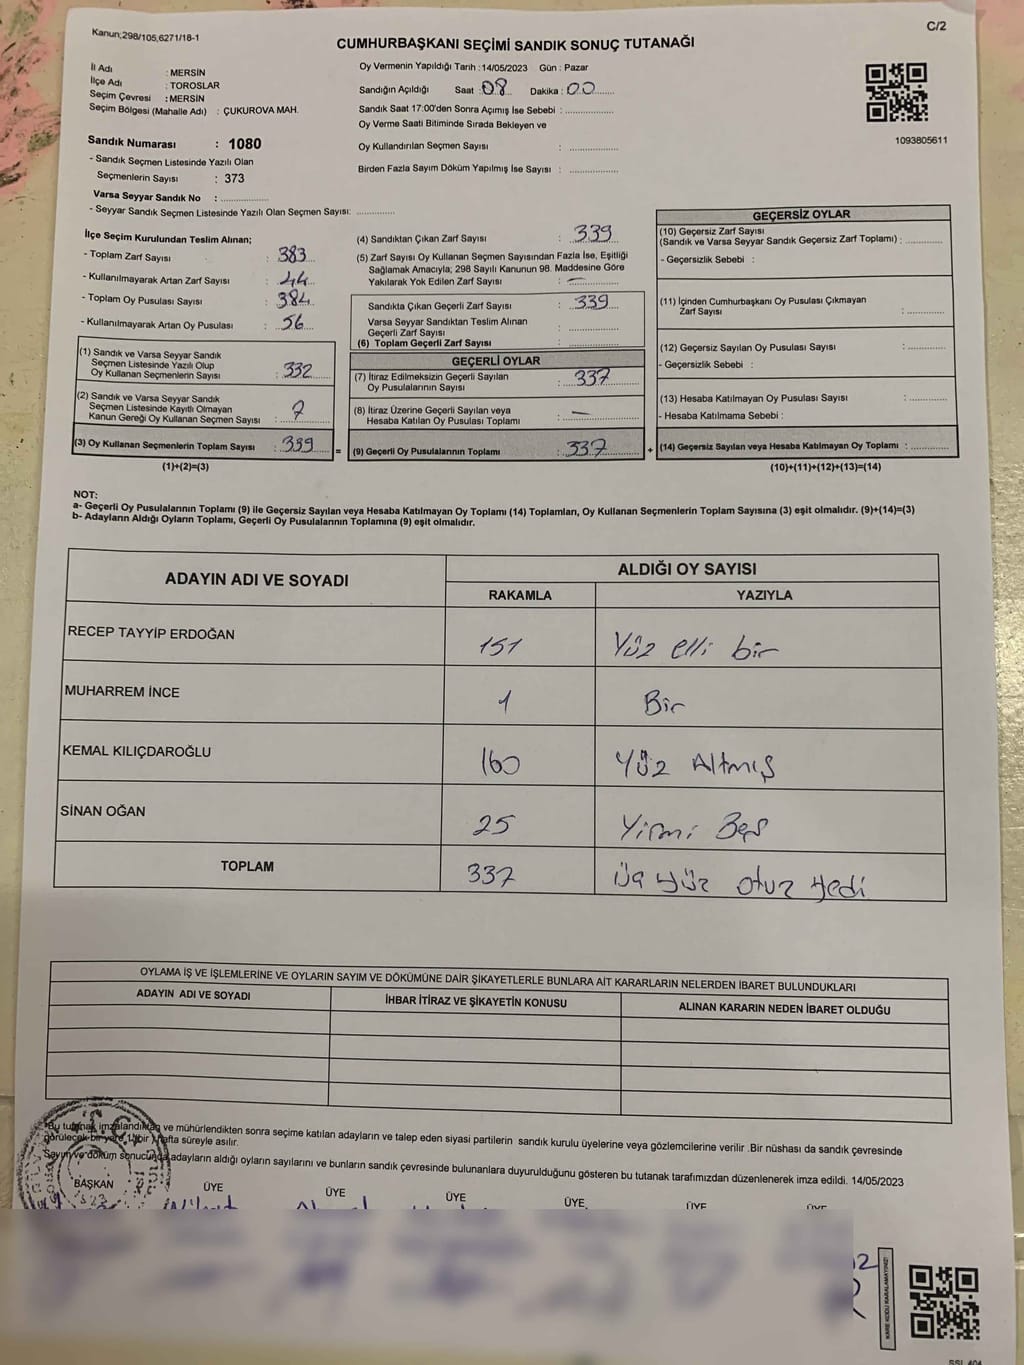 Kanun;298/105,6271/18-1
C/2
CUMHURBAŞKANI SEÇİMİ SANDIK SONUÇ TUTANAĞI
İl Adı : MERSİN
İlçe Adı : TOROSLAR
Seçim Çevresi : MERSİN
Seçim Bölgesi (Mahalle Adı) : ÇUKUROVA MAH.
Sandık Numarası : 1080
- Sandık Seçmen Listesinde Yazılı Olan
Seçmenlerin Sayısı : 373
Varsa Seyyar Sandık No : ..............
- Seyyar Sandık Seçmen Listesinde Yazılı Olan Seçmen Sayısı: ............
Oy Vermenin Yapıldığı Tarih : 14/05/2023 Gün : Pazar
Sandığın Açıldığı Saat : 08 Dakika : 00
Sandık Saat 17:00'den Sonra Açımış İse Sebebi : ..............
Oy Verme Saati Bitiminde Sırada Bekleyen ve
Oy Kullandırılan Seçmen Sayısı : ..............
Birden Fazla Sayım Döküm Yapılmış İse Sayısı : ..............
1093805611
İlçe Seçim Kurulundan Teslim Alınan;
- Toplam Zarf Sayısı : 383
- Kullanılmayarak Artan Zarf Sayısı : 44
- Toplam Oy Pusulası Sayısı : 384
- Kullanılmayarak Artan Oy Pusulası : 56
(1) Sandık ve Varsa Seyyar Sandık
Seçmen Listesinde Yazılı Olup
Oy Kullanan Seçmenlerin Sayısı : 332
(2) Sandık ve Varsa Seyyar Sandık
Seçmen Listesinde Kayıtlı Olmayan
Kanun Gereği Oy Kullanan Seçmen Sayısı : 7
(3) Oy Kullanan Seçmenlerin Toplam Sayısı : 339 =
(1)+(2)=(3)
(4) Sandıktan Çıkan Zarf Sayısı : 339
(5) Zarf Sayısı Oy Kullanan Seçmen Sayısından Fazla İse, Eşitliği
Sağlamak Amacıyla; 298 Sayılı Kanunun 98. Maddesine Göre
Yakılarak Yok Edilen Zarf Sayısı : —
Sandıkta Çıkan Geçerli Zarf Sayısı : 339
Varsa Seyyar Sandıktan Teslim Alınan
Geçerli Zarf Sayısı : ..............
(6) Toplam Geçerli Zarf Sayısı : ..............
GEÇERLİ OYLAR
(7) İtiraz Edilmeksizin Geçerli Sayılan
Oy Pusulalarının Sayısı : 337
(8) İtiraz Üzerine Geçerli Sayılan veya
Hesaba Katılan Oy Pusulası Toplamı : —
(9) Geçerli Oy Pusulalarının Toplamı : 337 +
GEÇERSİZ OYLAR
(10) Geçersiz Zarf Sayısı
(Sandık ve Varsa Seyyar Sandık Geçersiz Zarf Toplamı) : ............
- Geçersizlik Sebebi :
(11) İçinden Cumhurbaşkanı Oy Pusulası Çıkmayan
Zarf Sayısı : ............
(12) Geçersiz Sayılan Oy Pusulası Sayısı : ............
- Geçersizlik Sebebi :
(13) Hesaba Katılmayan Oy Pusulası Sayısı : ............
- Hesaba Katılmama Sebebi :
(14) Geçersiz Sayılan veya Hesaba Katılmayan Oy Toplamı : ............
(10)+(11)+(12)+(13)=(14)
NOT:
a- Geçerli Oy Pusulalarının Toplamı (9) ile Geçersiz Sayılan veya Hesaba Katılmayan Oy Toplamı (14) Toplamları, Oy Kullanan Seçmenlerin Toplam Sayısına (3) eşit olmalıdır. (9)+(14)=(3)
b- Adayların Aldığı Oyların Toplamı, Geçerli Oy Pusulalarının Toplamına (9) eşit olmalıdır.
ADAYIN ADI VE SOYADI
ALDIĞI OY SAYISI
RAKAMLA YAZIYLA
RECEP TAYYİP ERDOĞAN 151 Yüz elli bir
MUHARREM İNCE 1 Bir
KEMAL KILIÇDAROĞLU 160 Yüz Altmış
SİNAN OĞAN 25 Yirmi Beş
TOPLAM 337 üç yüz otuz yedi
OYLAMA İŞ VE İŞLEMLERİNE VE OYLARIN SAYIM VE DÖKÜMÜNE DAİR ŞİKAYETLERLE BUNLARA AİT KARARLARIN NELERDEN İBARET BULUNDUKLARI
ADAYIN ADI VE SOYADI İHBAR İTİRAZ VE ŞİKAYETİN KONUSU ALINAN KARARIN NEDEN İBARET OLDUĞU
Bu tutanak imzalandıktan ve mühürlendikten sonra seçime katılan adayların ve talep eden siyasi partilerin sandık kurulu üyelerine veya gözlemcilerine verilir .Bir nüshası da sandık çevresinde
görülecek bir yere 1 (bir) hafta süreyle asılır.
Sayım ve döküm sonucunda adayların aldığı oyların sayılarını ve bunların sandık çevresinde bulunanlara duyurulduğunu gösteren bu tutanak tarafımızdan düzenlenerek imza edildi. 14/05/2023
BAŞKAN ÜYE ÜYE ÜYE ÜYE ÜYE ÜYE
KARE KODU KARALAMAYINIZ!